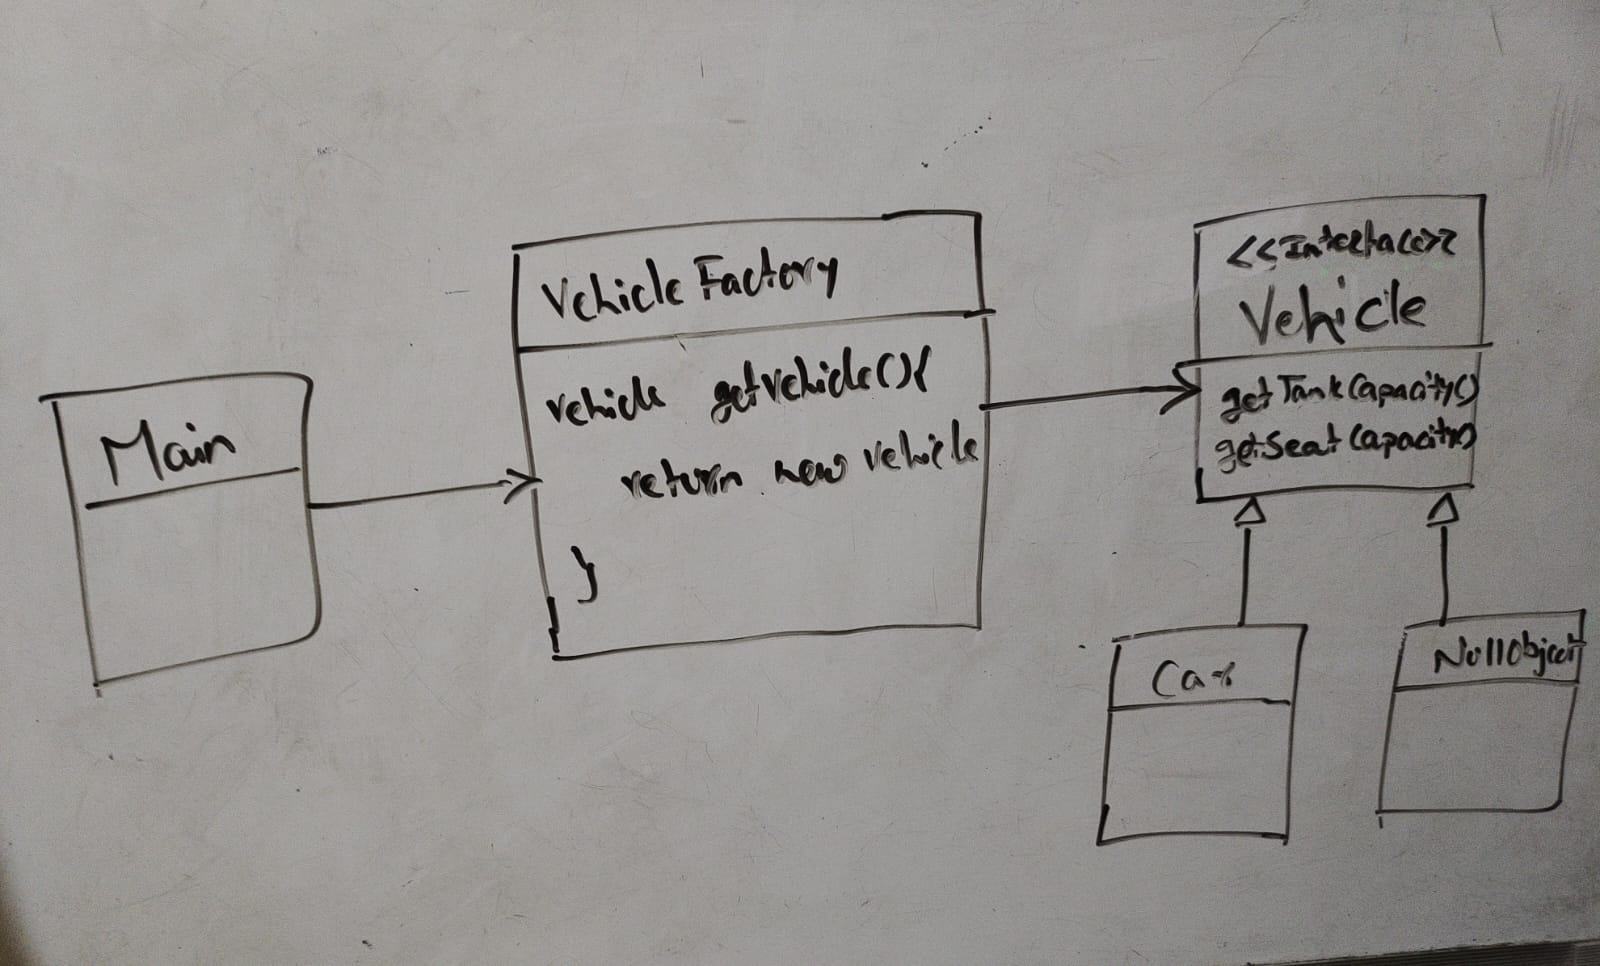 Main
Vehicle Factory
vehicle getvehicle(){
return new vehicle
}
<<Interface>>
Vehicle
getTankCapacity()
getSeatCapacity()
Car
NullObject